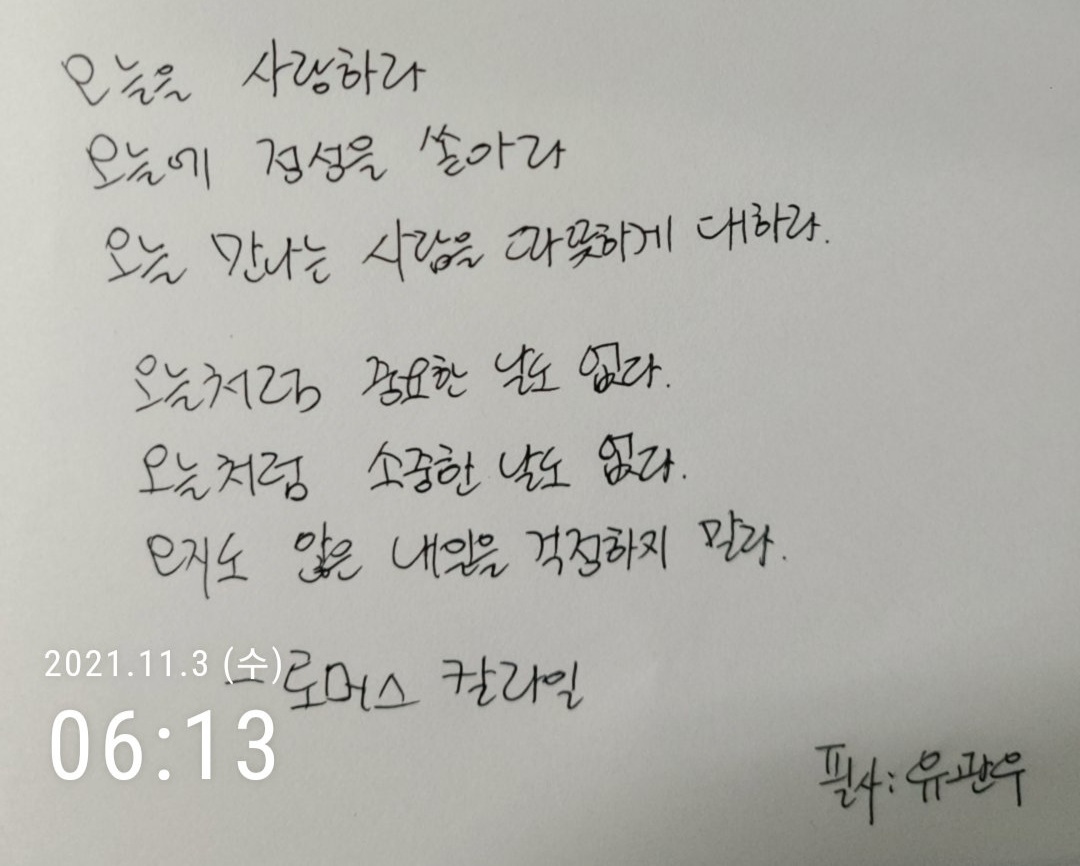 오늘을 사랑하라
오늘에 정성을 쏟아라
오늘 만나는 사람을 따뜻하게 대하라.
오늘처럼 중요한 날도 없다.
오늘처럼 소중한 날도 없다.
오지도 않은 내일을 걱정하지 말라.
2021.11.3 (수)
- 토머스 칼라일
06:13
필사: 유관우